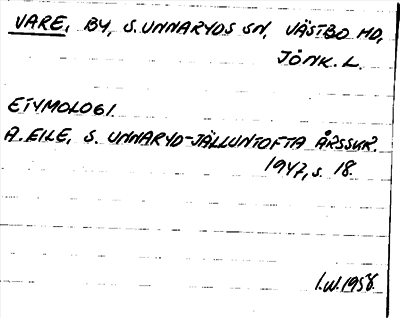 VARE, BY, S. UNNARYDS SN, VÄSTBO HD,
JÖNK. L.
ETYMOLOGI.
A. EILE, S. UNNARYD-JÄLLUNTOFTA ÅRSSKR.
1947, s. 18.
I.W. 1958.